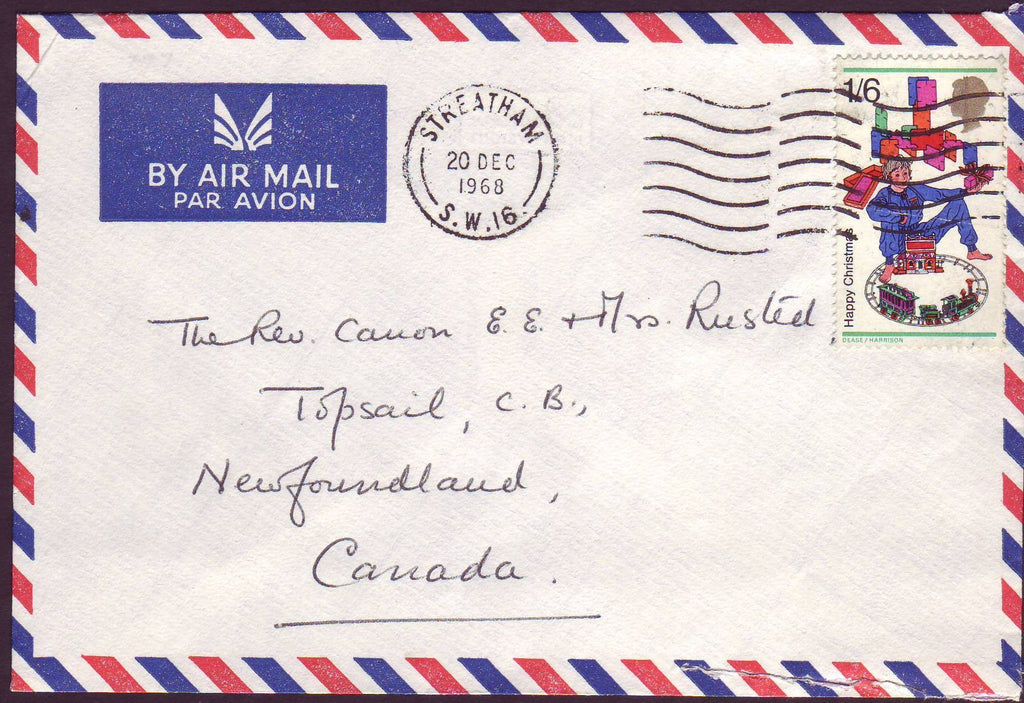 BY AIR MAIL
PAR AVION
STREATHAM
20 DEC
1968
S.W.16.
1/6
Happy Christmas
DEASE/HARRISON
The Rev. Canon E. E. + Mrs. Rusted,
Topsail, C. B.,
Newfoundland,
Canada.